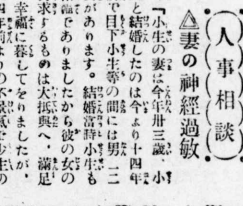 人事相談
妻の神經過敏
『小生の妻は今年卅三歳、小
と結婚したのは今より十四年
で目下小生等の間には男一二
があります。結婚當時小生も
福でありましたから彼の女の
求するものは大抵與へ、滿足
幸福に暮してをりましたが、